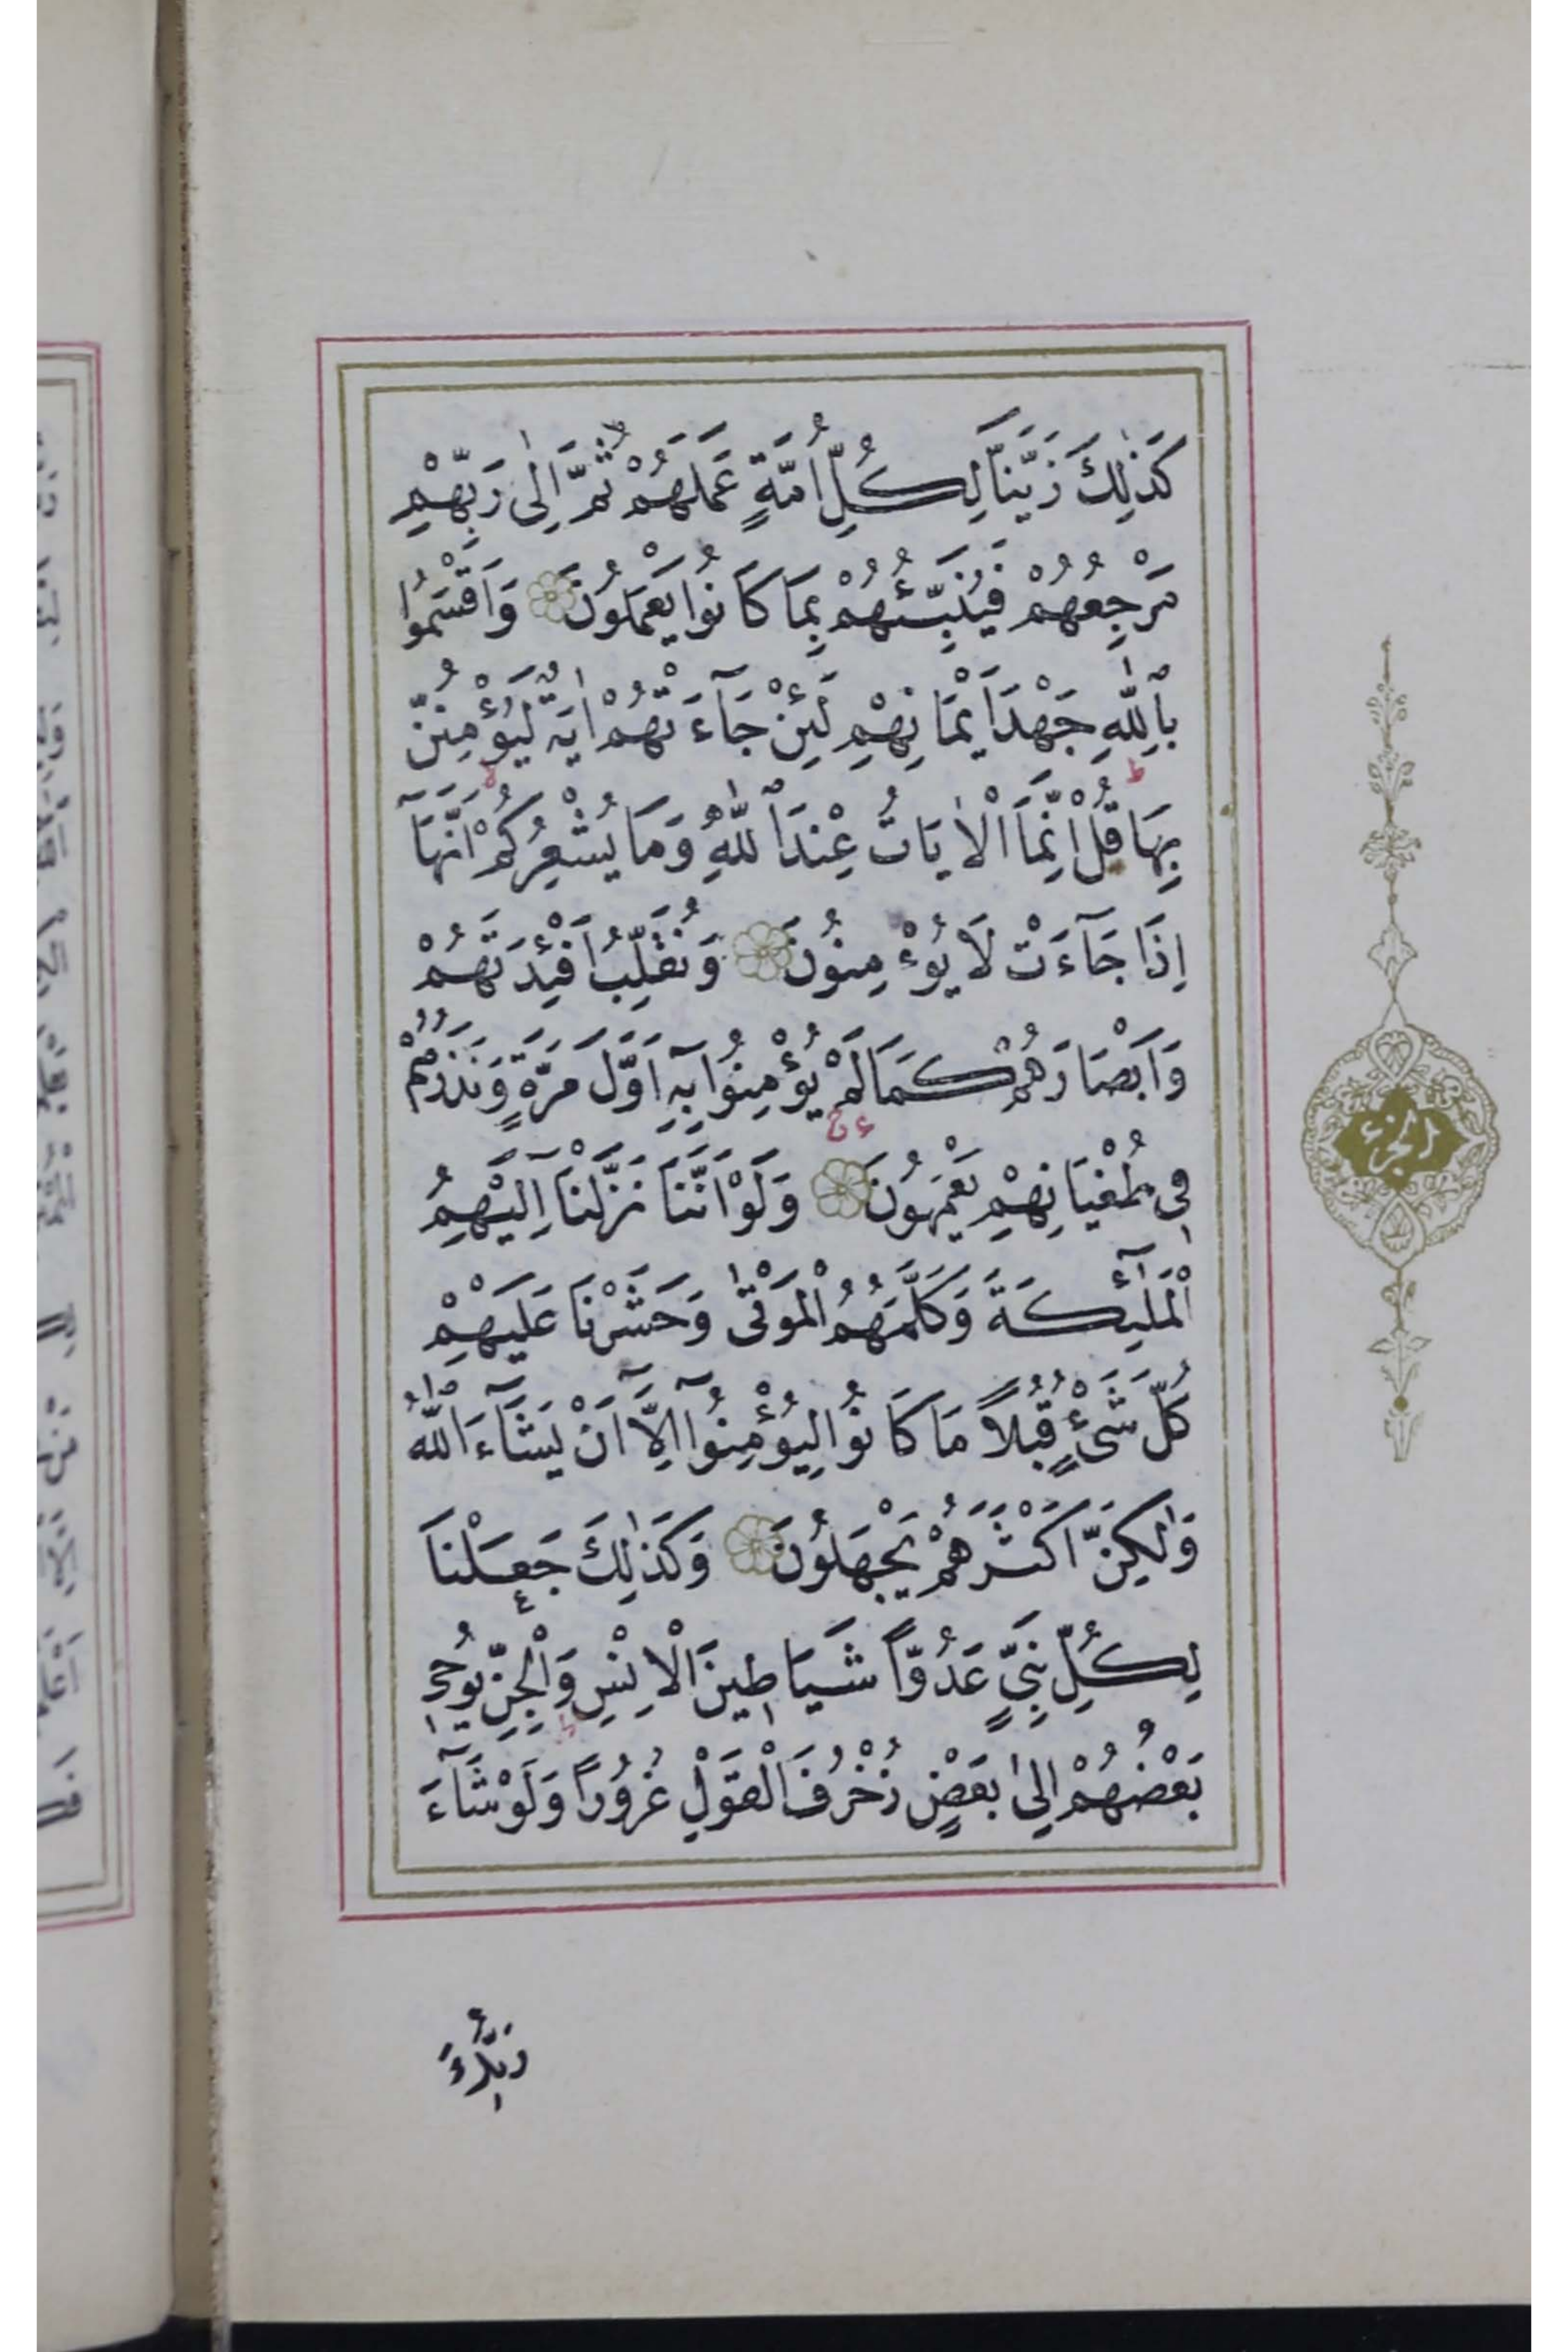 كَذٰلِكَ زَيَّنَّا لِكُلِّ اُمَّةٍ عَمَلَهُمْ ثُمَّ اِلٰى رَبِّهِمْ
مَرْجِعُهُمْ فَيُنَبِّئُهُمْ بِمَا كَانُوا يَعْمَلُونَ وَاَقْسَمُوا
بِاللّٰهِ جَهْدَ اَيْمَانِهِمْ لَئِنْ جَآءَتْهُمْ اٰيَةٌ لَيُؤْمِنُنَّ
بِهَا قُلْ اِنَّمَا الْاٰيَاتُ عِنْدَ اللّٰهِ وَمَا يُشْعِرُكُمْ اَنَّهَآ
اِذَا جَآءَتْ لَا يُؤْمِنُونَ وَنُقَلِّبُ اَفْئِدَتَهُمْ
وَاَبْصَارَهُمْ كَمَا لَمْ يُؤْمِنُوا بِهِٓ اَوَّلَ مَرَّةٍ وَنَذَرُهُمْ
فِي طُغْيَانِهِمْ يَعْمَهُونَ وَلَوْ اَنَّنَا نَزَّلْنَآ اِلَيْهِمُ
الْمَلٰٓئِكَةَ وَكَلَّمَهُمُ الْمَوْتٰى وَحَشَرْنَا عَلَيْهِمْ
كُلَّ شَيْءٍ قُبُلاً مَا كَانُوا لِيُؤْمِنُوٓا اِلَّآ اَنْ يَشَآءَ اللّٰهُ
وَلٰكِنَّ اَكْثَرَهُمْ يَجْهَلُونَ وَكَذٰلِكَ جَعَلْنَا
لِكُلِّ نَبِيٍّ عَدُوّاً شَيَاطِينَ الْاِنْسِ وَالْجِنِّ يُوحِي
بَعْضُهُمْ اِلٰى بَعْضٍ زُخْرُفَ الْقَوْلِ غُرُوراً وَلَوْ شَآءَ
الجزء